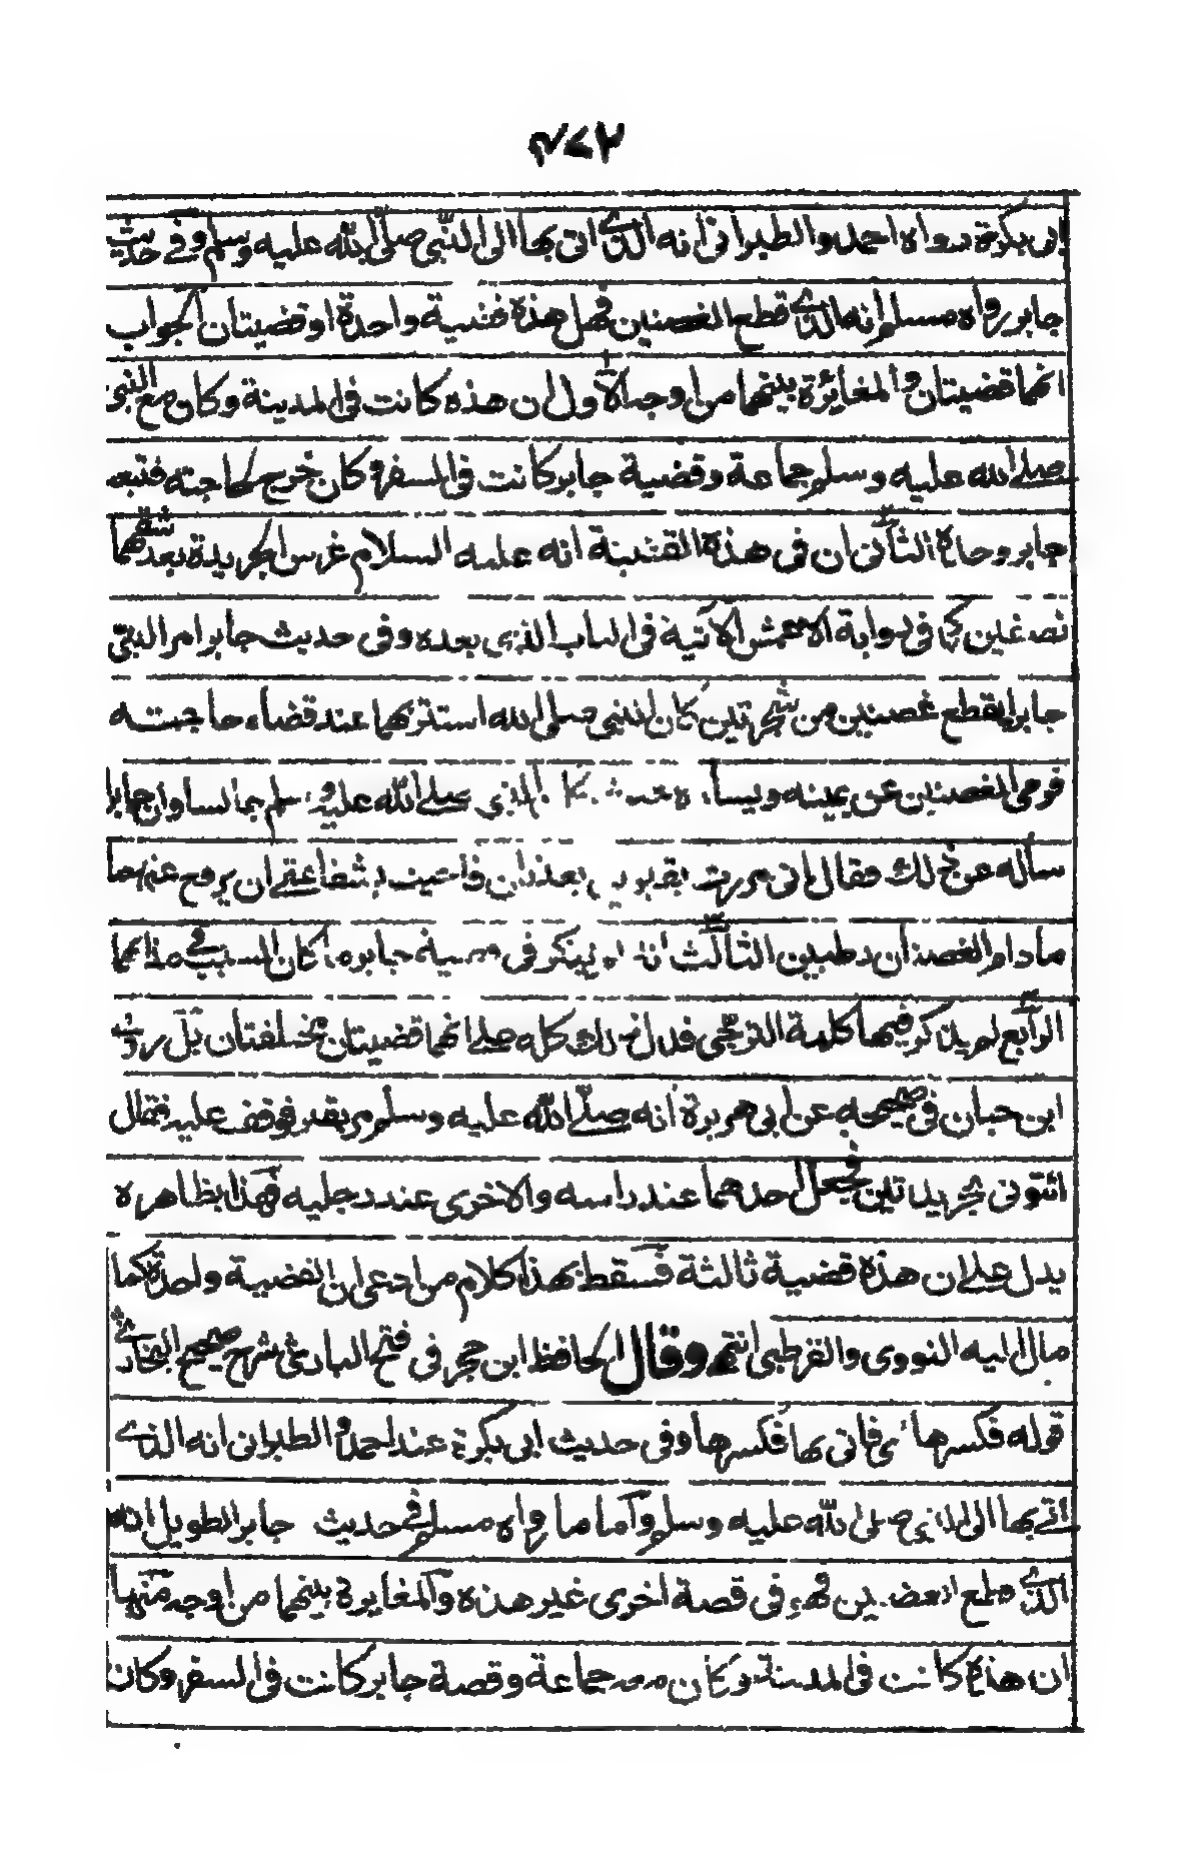 ٢٧٤
ابى بكرة رواه احمد والطبرانى انه الذى اتى بها الى النبى صلى الله عليه وسلم وفى حديث
جابر رواه مسلم انه الذى قطع الغصنين فهل هذه قضية واحدة او قضيتان الجواب
انهما قضيتان والمغائرة بينهما من اوجه الاول ان هذه كانت فى المدينة وكان مع النبى
صلى الله عليه وسلم جماعة وقضية جابر كانت فى السفر وكان خرج لحاجته فتبعه
جابر وحده الثانى ان فى هذه القضية انه عليه السلام غرس الجريدة بعد شقهما
نصفين كما فى رواية الاعمش الآتية فى الباب الذى بعده وفى حديث جابر امر النبى
جابرا بقطع غصنين من شجرتين كان النبى صلى الله استتر بهما عند قضاء حاجته
فرمى الغصنين عن يمينه ويساره حيث كان النبى صلى الله عليه وسلم جالسا وان جابرا
سأله عن ذلك فقال انى مررت بقبرين يعذبان فاحببت بشفاعتى ان يرفع عنهما
ما دام الغصنان رطبين الثالث انه لم يذكر فى قضية جابر ما كان السبب فى عذابهما
الرابع لم يذكر فيها كلمة الترجى فدل ذلك كله على انهما قضيتان مختلفتان بل روى
ابن حبان فى صحيحه عن ابى هريرة انه صلى الله عليه وسلم مر بقبر فوقف عليه فقال
ائتونى بجريدتين فجعل احدهما عند راسه والاخرى عند رجليه فهذا بظاهره
يدل على ان هذه قضية ثالثة فسقط بهذا كلام من ادعى ان القضية واحدة كما
مال اليه النووى والقرطبى انتهى وقال الحافظ ابن حجر فى فتح البارى شرح صحيح البخارى
قوله فكسرها اى فاتى بها فكسرها وفى حديث ابى بكرة عند احمد والطبرانى انه الذى
اتى بها الى النبى صلى الله عليه وسلم واما ما رواه مسلم فى حديث جابر الطويل انه
الذى قطع الغصنين فهو فى قصة اخرى غير هذه والمغايرة بينهما من اوجه منها
ان هذه كانت فى المدينة وكان معه جماعة وقصة جابر كانت فى السفر وكان